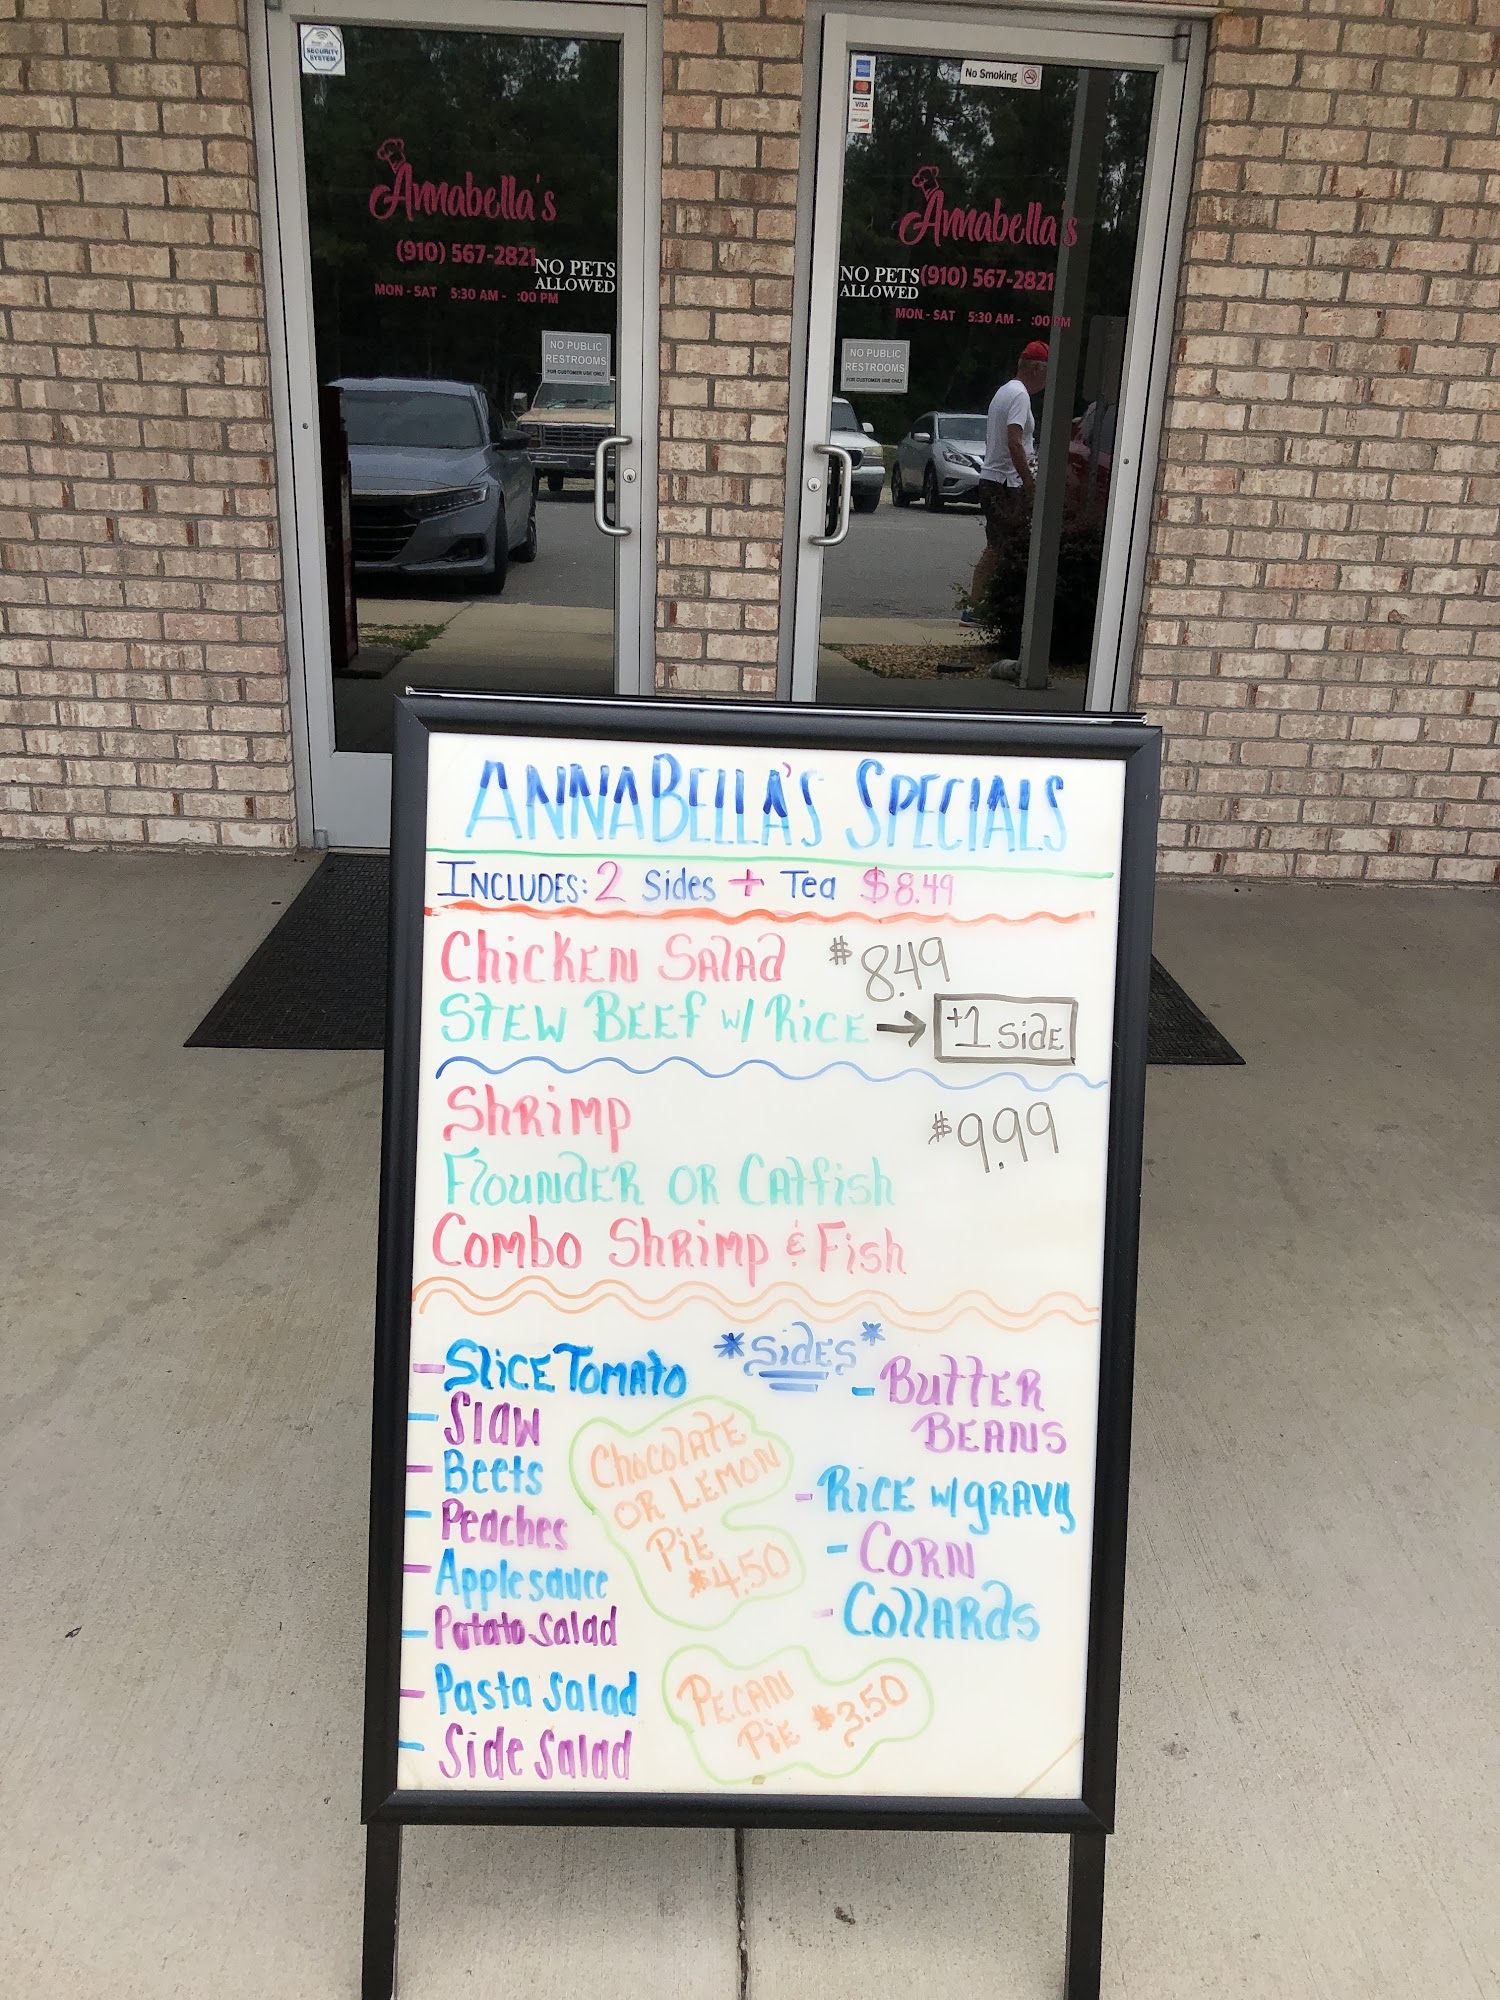 SECURITY
SYSTEM
Annabella's
(910) 567-2821
NO PETS
ALLOWED
MON - SAT 5:30 AM - :00 PM
NO PUBLIC
RESTROOMS
FOR CUSTOMER USE ONLY
VISA
No Smoking
Annabella's
NO PETS
ALLOWED
(910) 567-2821
MON - SAT 5:30 AM - :00 PM
NO PUBLIC
RESTROOMS
FOR CUSTOMER USE ONLY
ANNABELLA'S SPECIALS
INCLUDES: 2 Sides + Tea $8.49
Chicken Salad $8.49
Stew Beef w/ Rice → +1 Side
Shrimp $9.99
Flounder or Catfish
Combo Shrimp & Fish
*Sides*
- Slice Tomato
- Slaw
- Beets
- Peaches
- Applesauce
- Potato Salad
- Pasta Salad
- Side Salad
Chocolate
or Lemon
Pie
$4.50
Pecan
Pie $3.50
- Butter
Beans
- Rice w/ gravy
- Corn
- Collards